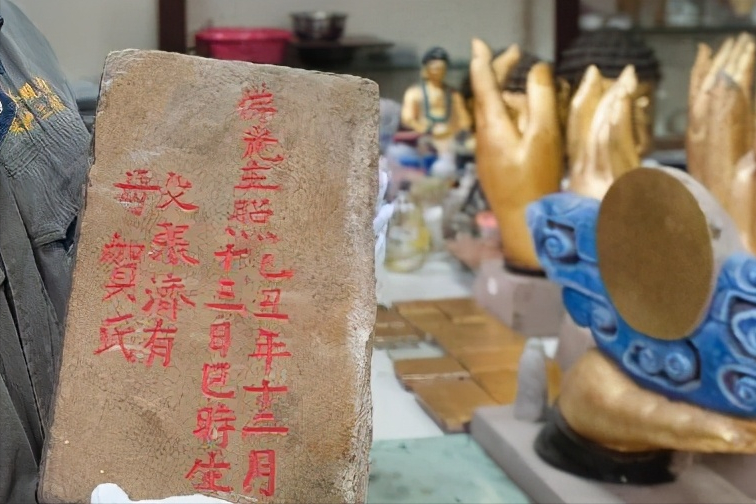 施主照
乙丑年十二月
十三日巳時生
父張濟有
母賀氏